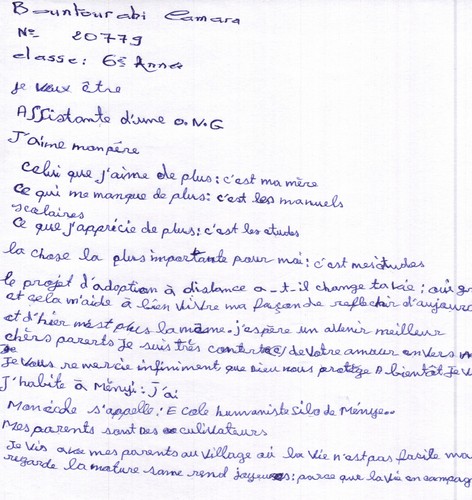 Bountourabi Camara
N° 20779
classe: 6e Année
je veux être
Assistante d'une O.N.G
J'aime monpère
celui que j'aime de plus: c'est ma mère
ce qui me manque de plus: c'est les manuels
scolaires
ce que j'apprécie de plus: c'est les etudes
la chose la plus importante pour moi: c'est mes études
le projet d'adoption à distance a-t-il change ta vie: oui
et cela m'aide à bien vivre ma façon de reflechir
et d'hier n'est plus la même. j'espère un avenir meilleur
chèrs parents je suis très contente de votre amour envers
Je vous remercie infiniment que Dieu vous protège A bientôt
J'habite à Ményi: j'ai
Monécole s'appelle: Ecole humaniste Silo de Ménye..
Mes parents sont des cultivateurs
Je vis avec mes parents au Village où la vie n'est pas facile
regarde la nature same rend joyeuse: parce que la vie en